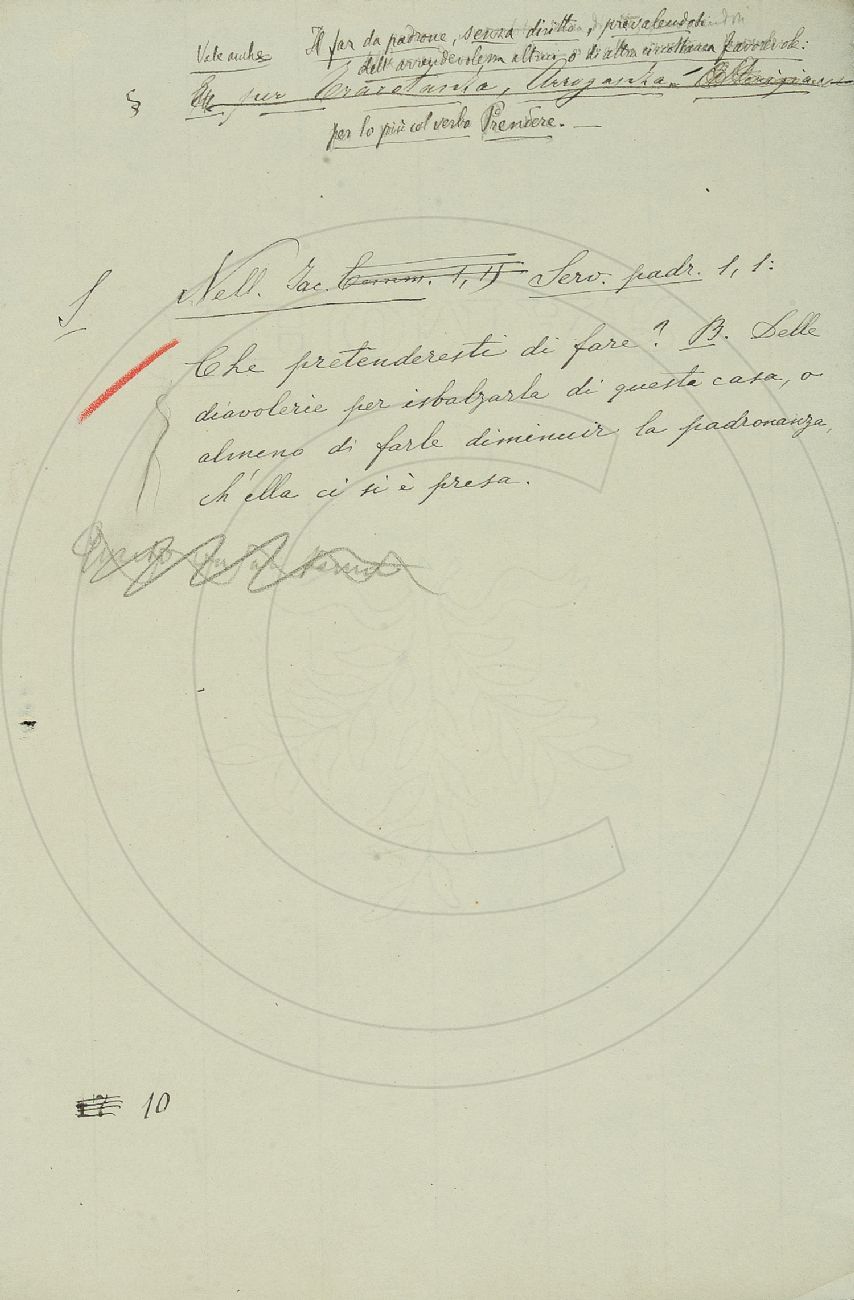 Vale anche Il far da padrone, senza diritto, prevalendosi
dell'arrendevolezza altrui o di altra circostanza favorevole:
§ E per Tracotanza, Arroganza.
per lo più col verbo Prendere. —
S Nell. Jac. Comm. 1, Serv. padr. 1, 1:
Che pretenderesti di fare? B. Delle
diavolerie per isbalzarla di questa casa, o
almeno di farle diminuir la padronanza,
ch'ella ci si è presa.
10